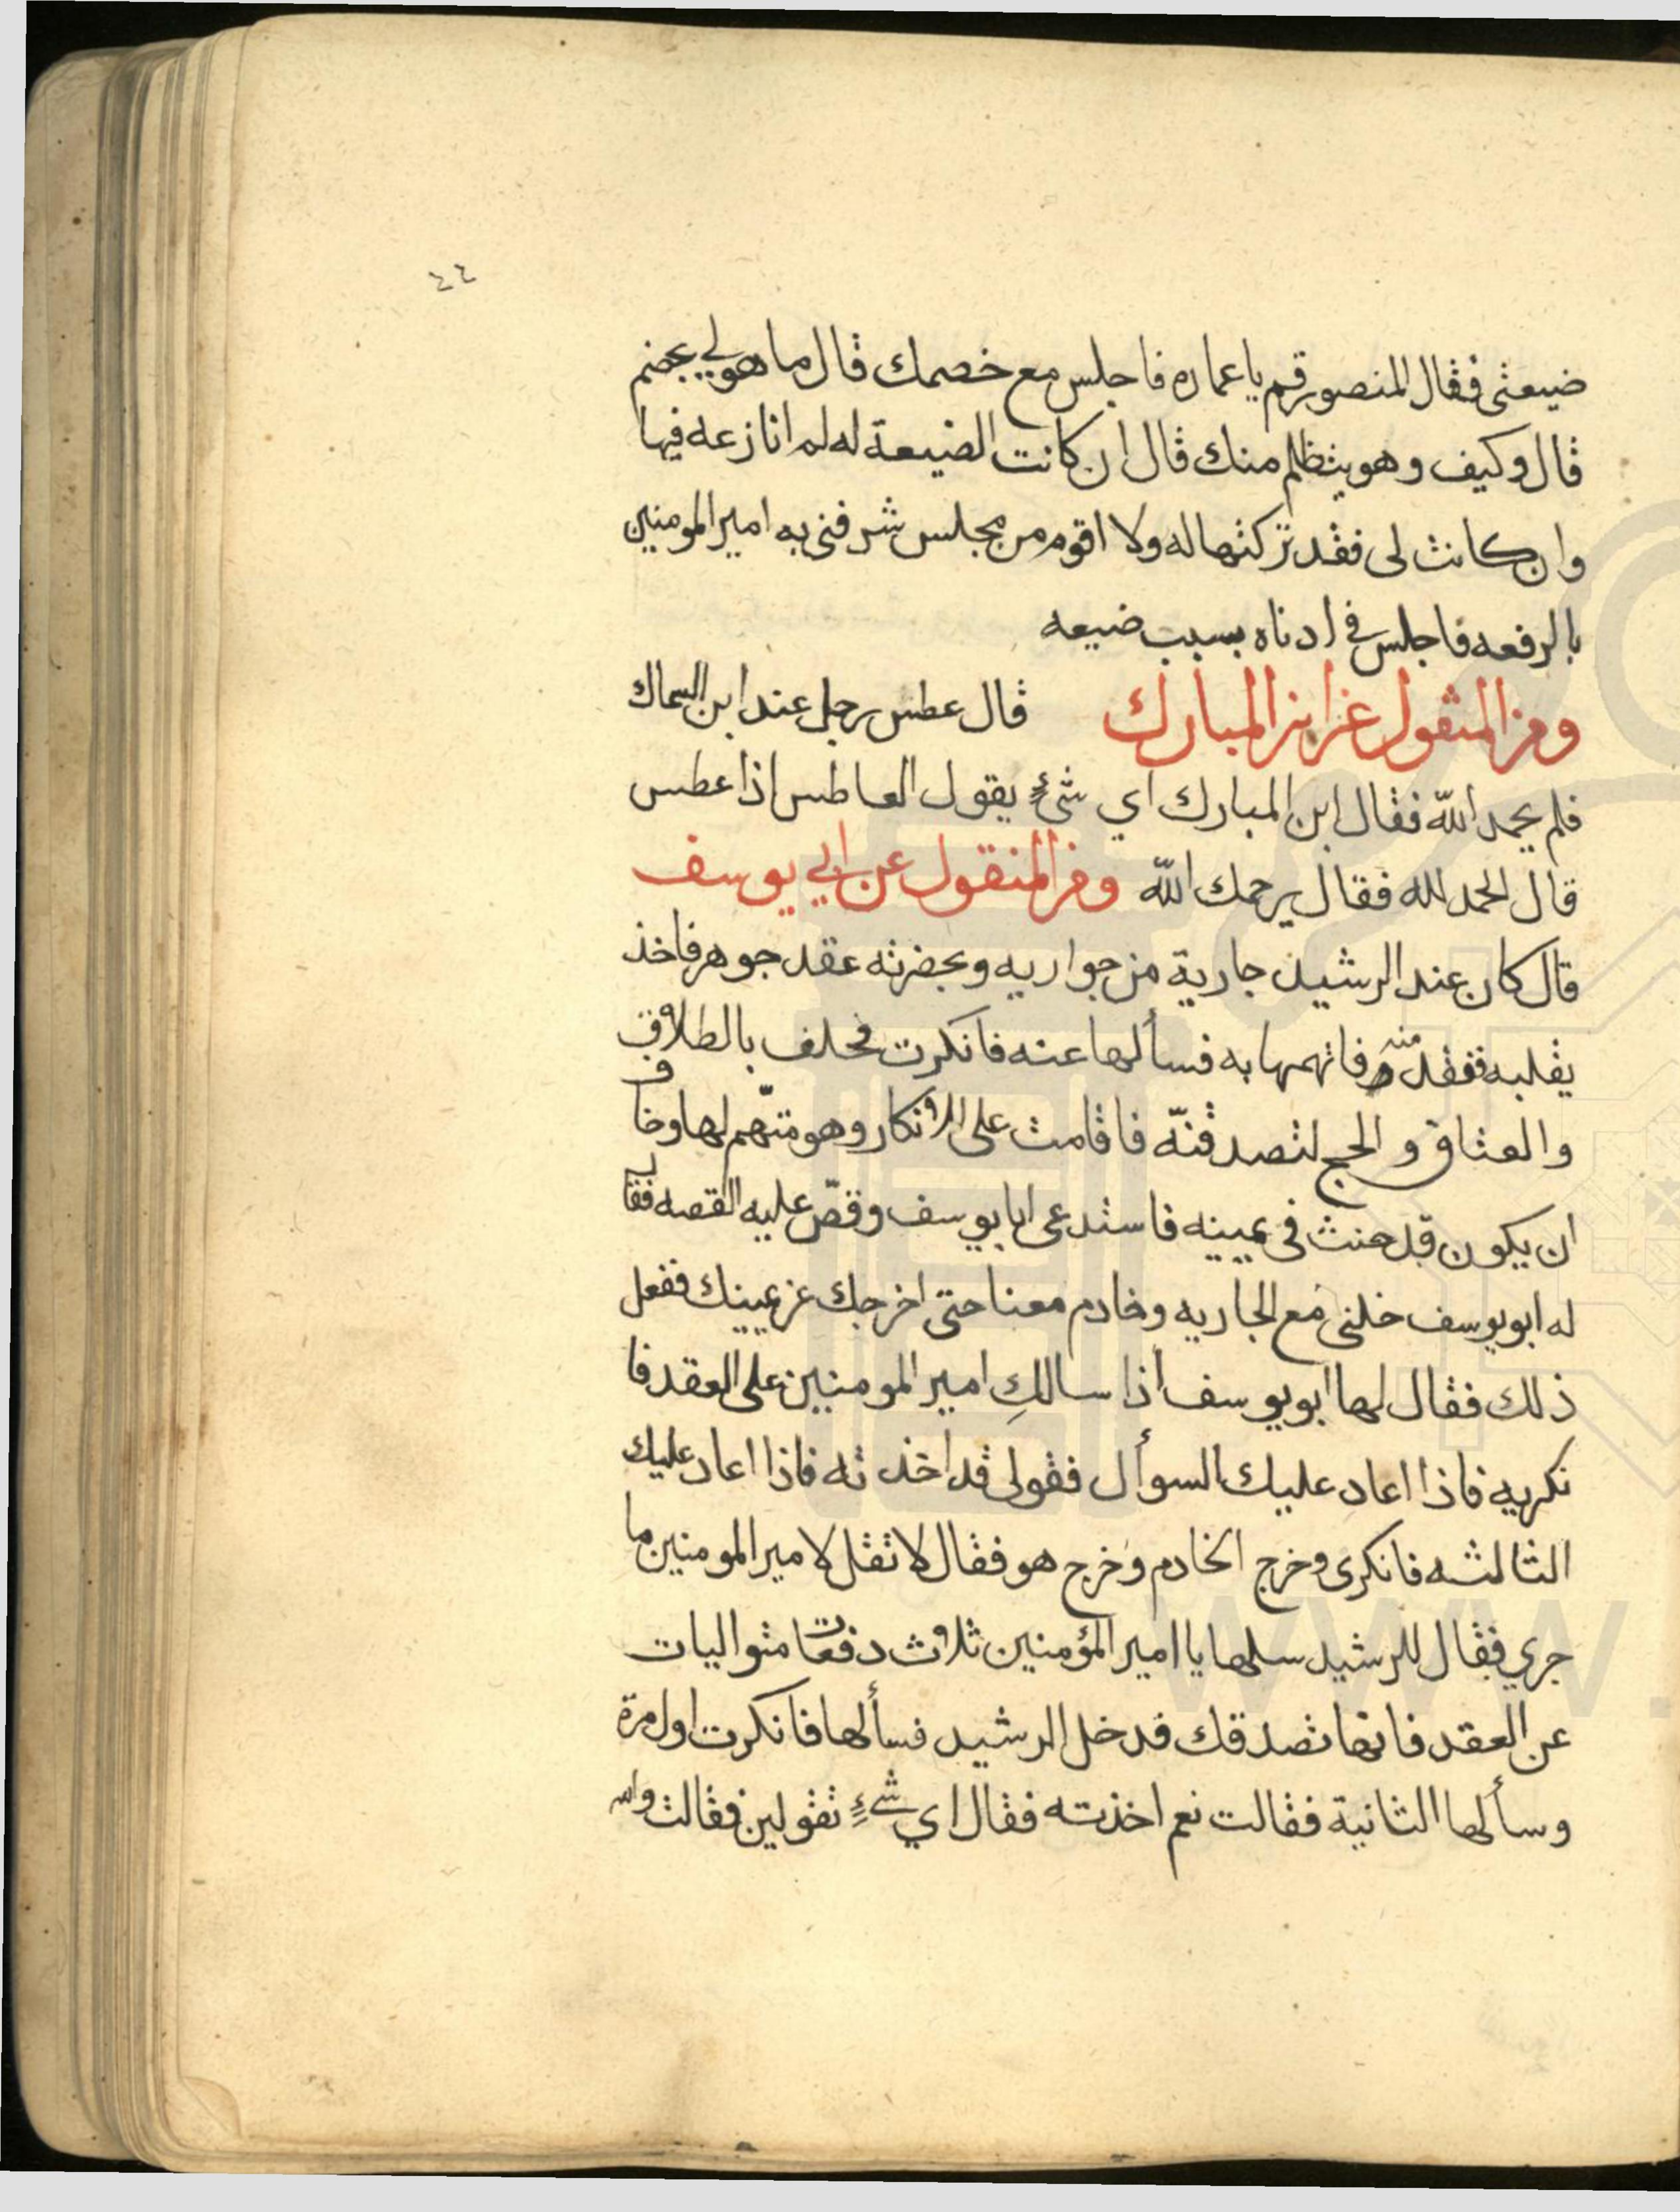 ٤٤
ضيعتى فقال المنصور قم يا عماره فاجلس مع خصمك قال ما هو لي بخصم
قال وكيف وهو يتظلم منك قال ان كانت الضيعة له لم انازعه فيها
وان كانت لى فقد تركتها له ولا اقوم من مجلس شرفنى به امير المومنين
بالرفعه فاجلس في ادناه بسبب ضيعه
ومن المنقول عن ابن المبارك قال عطس رجل عند ابن السماك
فلم يحمد الله فقال ابن المبارك اي شئٍ يقول العاطس اذا عطس
قال الحمد لله فقال يرحمك الله ومن المنقول عن ابي يوسف
قال كان عند الرشيد جارية من جواريه وبحضرته عقد جوهر فاخذ
يقلبه ففقد منه فاتهمها به فسألها عنه فانكرت فحلف بالطلاق
والعتاق والحج لتصدقنّه فاقامت على الانكار وهو متّهم لها وخاف
ان يكون قد حنث فى يمينه فاستدعى ابا يوسف وقصّ عليه القصه فقال
له ابو يوسف خلنى مع الجاريه وخادم معنا حتى اخرجك عن يمينك ففعل
ذلك فقال لها ابو يوسف اذا سالكِ امير المومنين على العقد فا
نكريه فاذا اعاد عليك السوأل فقولى قد اخذ ته فاذا اعاد عليك
الثالثه فانكرى وخرج الخادم وخرج هو فقال لا تقل لامير المومنين ما
جري فقال للرشيد سلها يا امير المؤمنين ثلاث دفعات متواليات
عن العقد فانها تصدقك فدخل الرشيد فسألها فانكرت اول مرة
وسألها الثانية فقالت نعم اخذته فقال اي شئٍ تقولين فقالت والله
www.